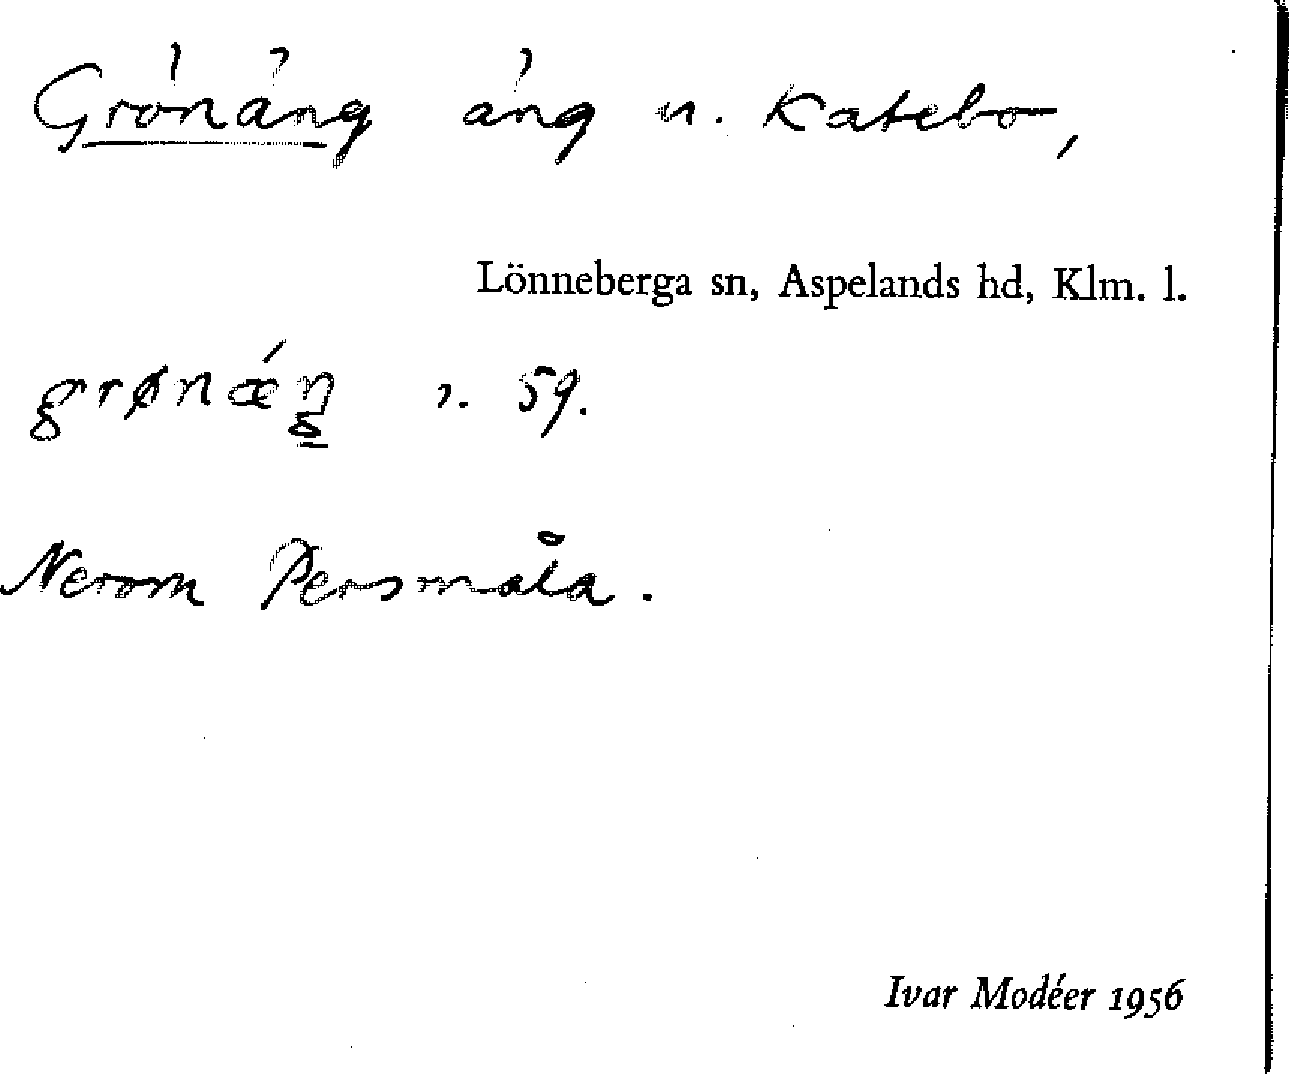 Grönäng äng u. Katebo,
Lönneberga sn, Aspelands hd, Klm. l.
grønǽŋ 1. 59.
Nerom Persmåla.
Ivar Modéer 1956